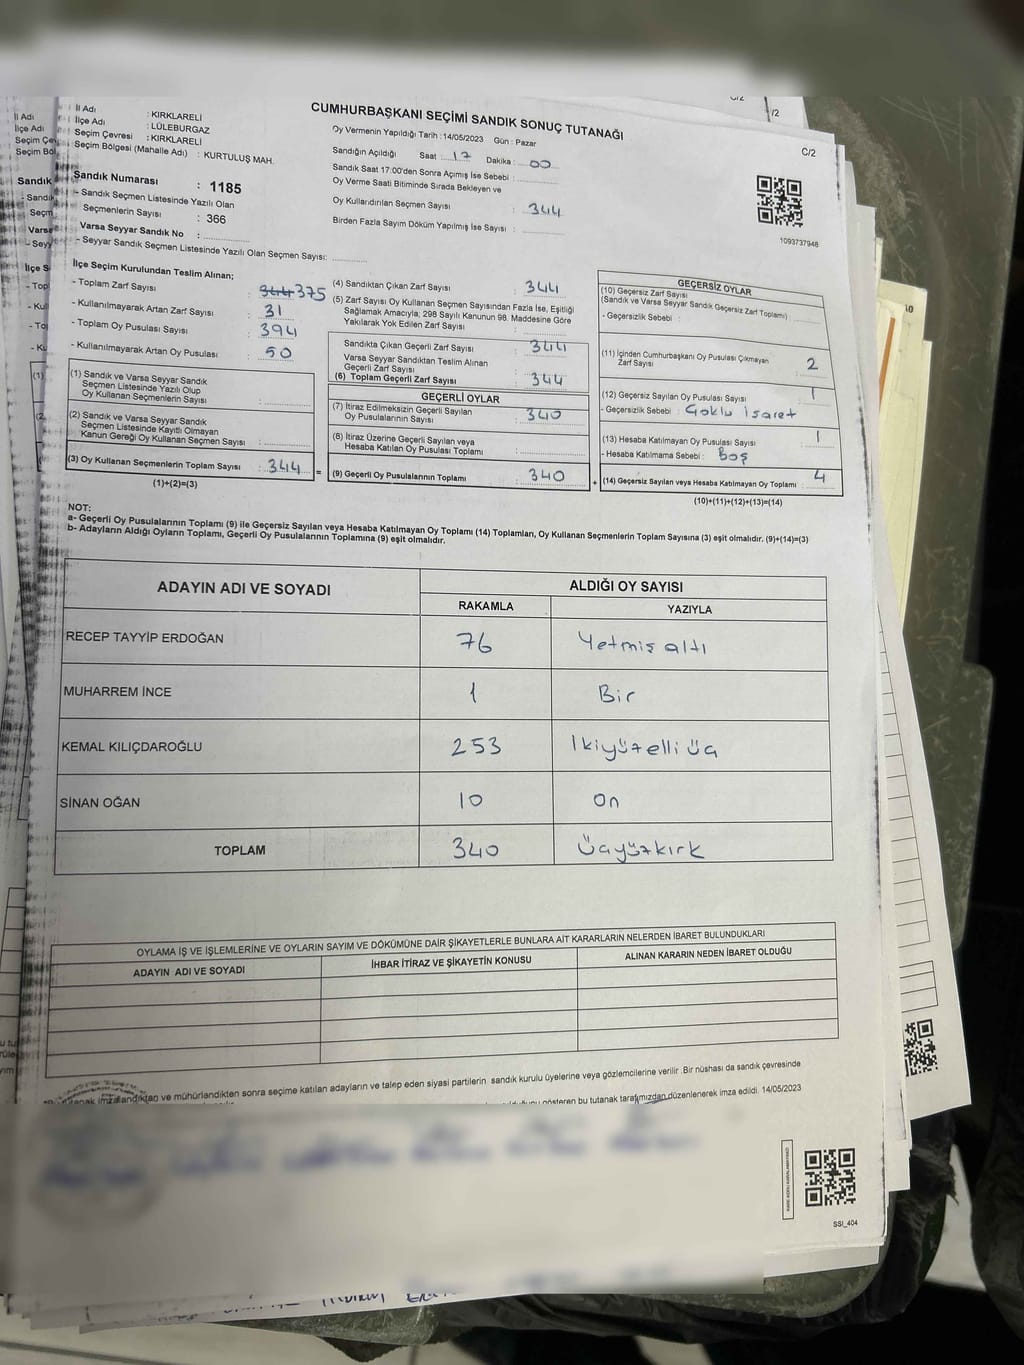 CUMHURBAŞKANI SEÇİMİ SANDIK SONUÇ TUTANAĞI
C/2
İl Adı : KIRKLARELİ
İlçe Adı : LÜLEBURGAZ
Seçim Çevresi : KIRKLARELİ
Seçim Bölgesi (Mahalle Adı) : KURTULUŞ MAH.
Sandık Numarası : 1185
- Sandık Seçmen Listesinde Yazılı Olan
Seçmenlerin Sayısı : 366
Varsa Seyyar Sandık No :
- Seyyar Sandık Seçmen Listesinde Yazılı Olan Seçmen Sayısı:
Oy Vermenin Yapıldığı Tarih : 14/05/2023 Gün : Pazar
Sandığın Açıldığı Saat : 17 Dakika : 00
Sandık Saat 17:00'den Sonra Açımış İse Sebebi :
Oy Verme Saati Bitiminde Sırada Bekleyen ve
Oy Kullandırılan Seçmen Sayısı : 344
Birden Fazla Sayım Döküm Yapılmış İse Sayısı :
1093737948
İlçe Seçim Kurulundan Teslim Alınan;
- Toplam Zarf Sayısı : 344 375
- Kullanılmayarak Artan Zarf Sayısı : 31
- Toplam Oy Pusulası Sayısı : 394
- Kullanılmayarak Artan Oy Pusulası : 50
(1) Sandık ve Varsa Seyyar Sandık
Seçmen Listesinde Yazılı Olup
Oy Kullanan Seçmenlerin Sayısı :
(2) Sandık ve Varsa Seyyar Sandık
Seçmen Listesinde Kayıtlı Olmayan
Kanun Gereği Oy Kullanan Seçmen Sayısı :
(3) Oy Kullanan Seçmenlerin Toplam Sayısı : 344
(1)+(2)=(3)
(4) Sandıktan Çıkan Zarf Sayısı : 344
(5) Zarf Sayısı Oy Kullanan Seçmen Sayısından Fazla İse, Eşitliği
Sağlamak Amacıyla, 298 Sayılı Kanunun 98. Maddesine Göre
Yakılarak Yok Edilen Zarf Sayısı :
Sandıkta Çıkan Geçerli Zarf Sayısı : 344
Varsa Seyyar Sandıktan Teslim Alınan
Geçerli Zarf Sayısı :
(6) Toplam Geçerli Zarf Sayısı : 344
GEÇERLİ OYLAR
(7) İtiraz Edilmeksizin Geçerli Sayılan
Oy Pusulalarının Sayısı : 340
(8) İtiraz Üzerine Geçerli Sayılan veya
Hesaba Katılan Oy Pusulası Toplamı :
(9) Geçerli Oy Pusulalarının Toplamı : 340
GEÇERSİZ OYLAR
(10) Geçersiz Zarf Sayısı
(Sandık ve Varsa Seyyar Sandık Geçersiz Zarf Toplamı) :
- Geçersizlik Sebebi :
(11) İçinden Cumhurbaşkanı Oy Pusulası Çıkmayan
Zarf Sayısı : 2
(12) Geçersiz Sayılan Oy Pusulası Sayısı : 1
- Geçersizlik Sebebi : Çoklu İşaret
(13) Hesaba Katılmayan Oy Pusulası Sayısı : 1
- Hesaba Katılmama Sebebi : Boş
(14) Geçersiz Sayılan veya Hesaba Katılmayan Oy Toplamı : 4
(10)+(11)+(12)+(13)=(14)
NOT:
a- Geçerli Oy Pusulalarının Toplamı (9) ile Geçersiz Sayılan veya Hesaba Katılmayan Oy Toplamı (14) Toplamları, Oy Kullanan Seçmenlerin Toplam Sayısına (3) eşit olmalıdır. (9)+(14)=(3)
b- Adayların Aldığı Oyların Toplamı, Geçerli Oy Pusulalarının Toplamına (9) eşit olmalıdır.
ADAYIN ADI VE SOYADI ALDIĞI OY SAYISI
RAKAMLA YAZIYLA
RECEP TAYYİP ERDOĞAN 76 Yetmiş altı
MUHARREM İNCE 1 Bir
KEMAL KILIÇDAROĞLU 253 İkiyüzelli üç
SİNAN OĞAN 10 On
TOPLAM 340 Üçyüzkırk
OYLAMA İŞ VE İŞLEMLERİNE VE OYLARIN SAYIM VE DÖKÜMÜNE DAİR ŞİKAYETLERLE BUNLARA AİT KARARLARIN NELERDEN İBARET BULUNDUKLARI
ADAYIN ADI VE SOYADI İHBAR İTİRAZ VE ŞİKAYETİN KONUSU ALINAN KARARIN NEDEN İBARET OLDUĞU
imzalandıktan ve mühürlendikten sonra seçime katılan adayların ve talep eden siyasi partilerin sandık kurulu üyelerine veya gözlemcilerine verilir. Bir nüshası da sandık çevresinde
gösteren bu tutanak tarafımızdan düzenlenerek imza edildi. 14/05/2023
SSİ_404